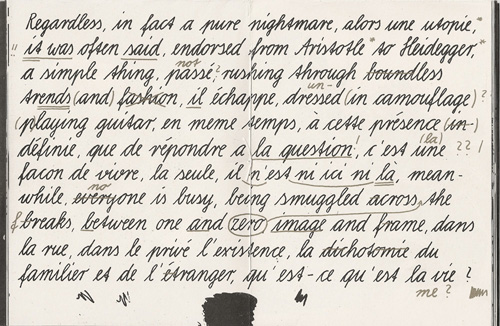 Regardless, in fact a pure nightmare, alors une utopie,"
!! it was often said, endorsed from Aristotle "to Heidegger,"
not
a simple thing, passé? rushing through boundless
un-
trends (and) fashion, il échappe, dressed (in camouflage) ?
(playing guitar, en meme temps, à cette présence (in-)
! (la)
définie, que de répondre a la question, c'est une ?? !
facon de vivre, la seule, il n'est ni ici ni là, mean-
no
while, everyone is busy, being smuggled across, the
f breaks, between one and zero image and frame, dans
la rue, dans le privé l'existence, la dichotomie du
familier et de l'étranger, qu'est-ce qu'est la vie ?
me ?